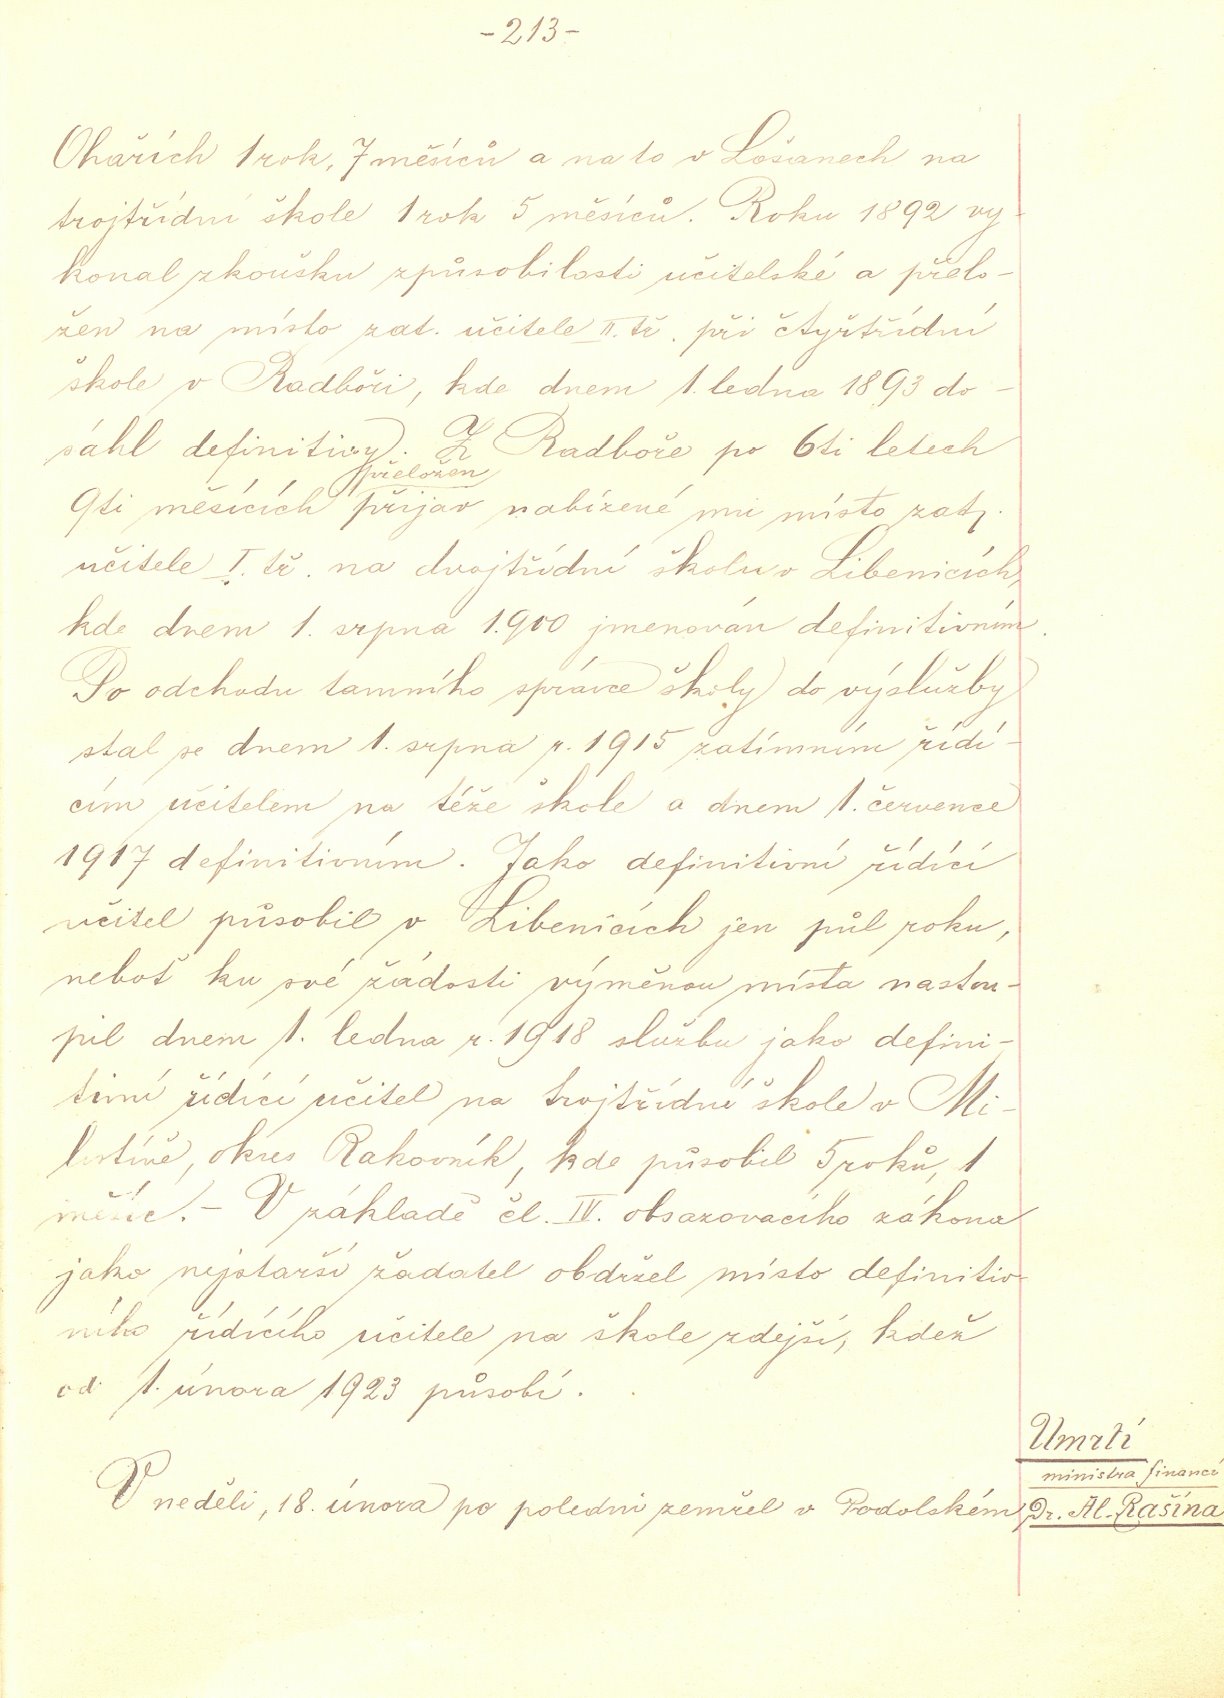 -213-
Ohařích 1 rok, 7 měsíců a na to v Lošanech na
trojtřídní škole 1 rok 5 měsíců. Roku 1892 vy-
konal zkoušku způsobilosti učitelské a přelo-
žen na místo zat. učitele II. tř. při čtyřtřídní
škole v Radboři, kde dnem 1. ledna 1893 do-
sáhl definitivy. Z Radboře po 6ti letech
přeložen
9ti měsících přijav nabízené mu místo zatz.
učitele I. tř. na dvojtřídní školu v Libenicích,
kde dnem 1. srpna 1900 jmenován definitivním.
Po odchodu tamního správce školy do výslužby
stal se dnem 1. srpna r. 1915 zatímním řídí-
cím učitelem na téže škole a dnem 1. července
1917 definitivním. Jako definitivní řídící
učitel působil v Libenicích jen půl roku,
neboť ku své žádosti výměnou místa nastou-
pil dnem 1. ledna r. 1918 službu jako defini-
tivní řídící učitel na trojtřídní škole v Mi-
lostíně, okres Rakovník, kde působil 5 roků, 1
měsíc. - V základě čl. IV. obsazovacího zákona
jako nejstarší žadatel obdržel místo definitiv-
ního řídícího učitele na škole zdejší, kdež
od 1. února 1923 působí.
Umrtí
ministra financí
Dr. Al. Rašína
V neděli, 18. února po poledni zemřel v Podolském